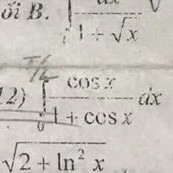 ối B. ∫ dx / 1 + √x √
12) ∫ π/2 0 cos x / 1 + cos x dx
√2 + ln² x